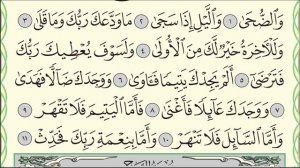 وَالضُّحَىٰ ١ وَالَّيْلِ إِذَا سَجَىٰ ٢ مَا وَدَّعَكَ رَبُّكَ وَمَا قَلَىٰ ٣
وَلَلْآخِرَةُ خَيْرٌ لَّكَ مِنَ الْأُولَىٰ ٤ وَلَسَوْفَ يُعْطِيكَ رَبُّكَ
فَتَرْضَىٰ ٥ أَلَمْ يَجِدْكَ يَتِيمًا فَآوَىٰ ٦ وَوَجَدَكَ ضَالًّا فَهَدَىٰ
٧ وَوَجَدَكَ عَائِلًا فَأَغْنَىٰ ٨ فَأَمَّا الْيَتِيمَ فَلَا تَقْهَرْ ٩
وَأَمَّا السَّائِلَ فَلَا تَنْهَرْ ١٠ وَأَمَّا بِنِعْمَةِ رَبِّكَ فَحَدِّثْ ١١